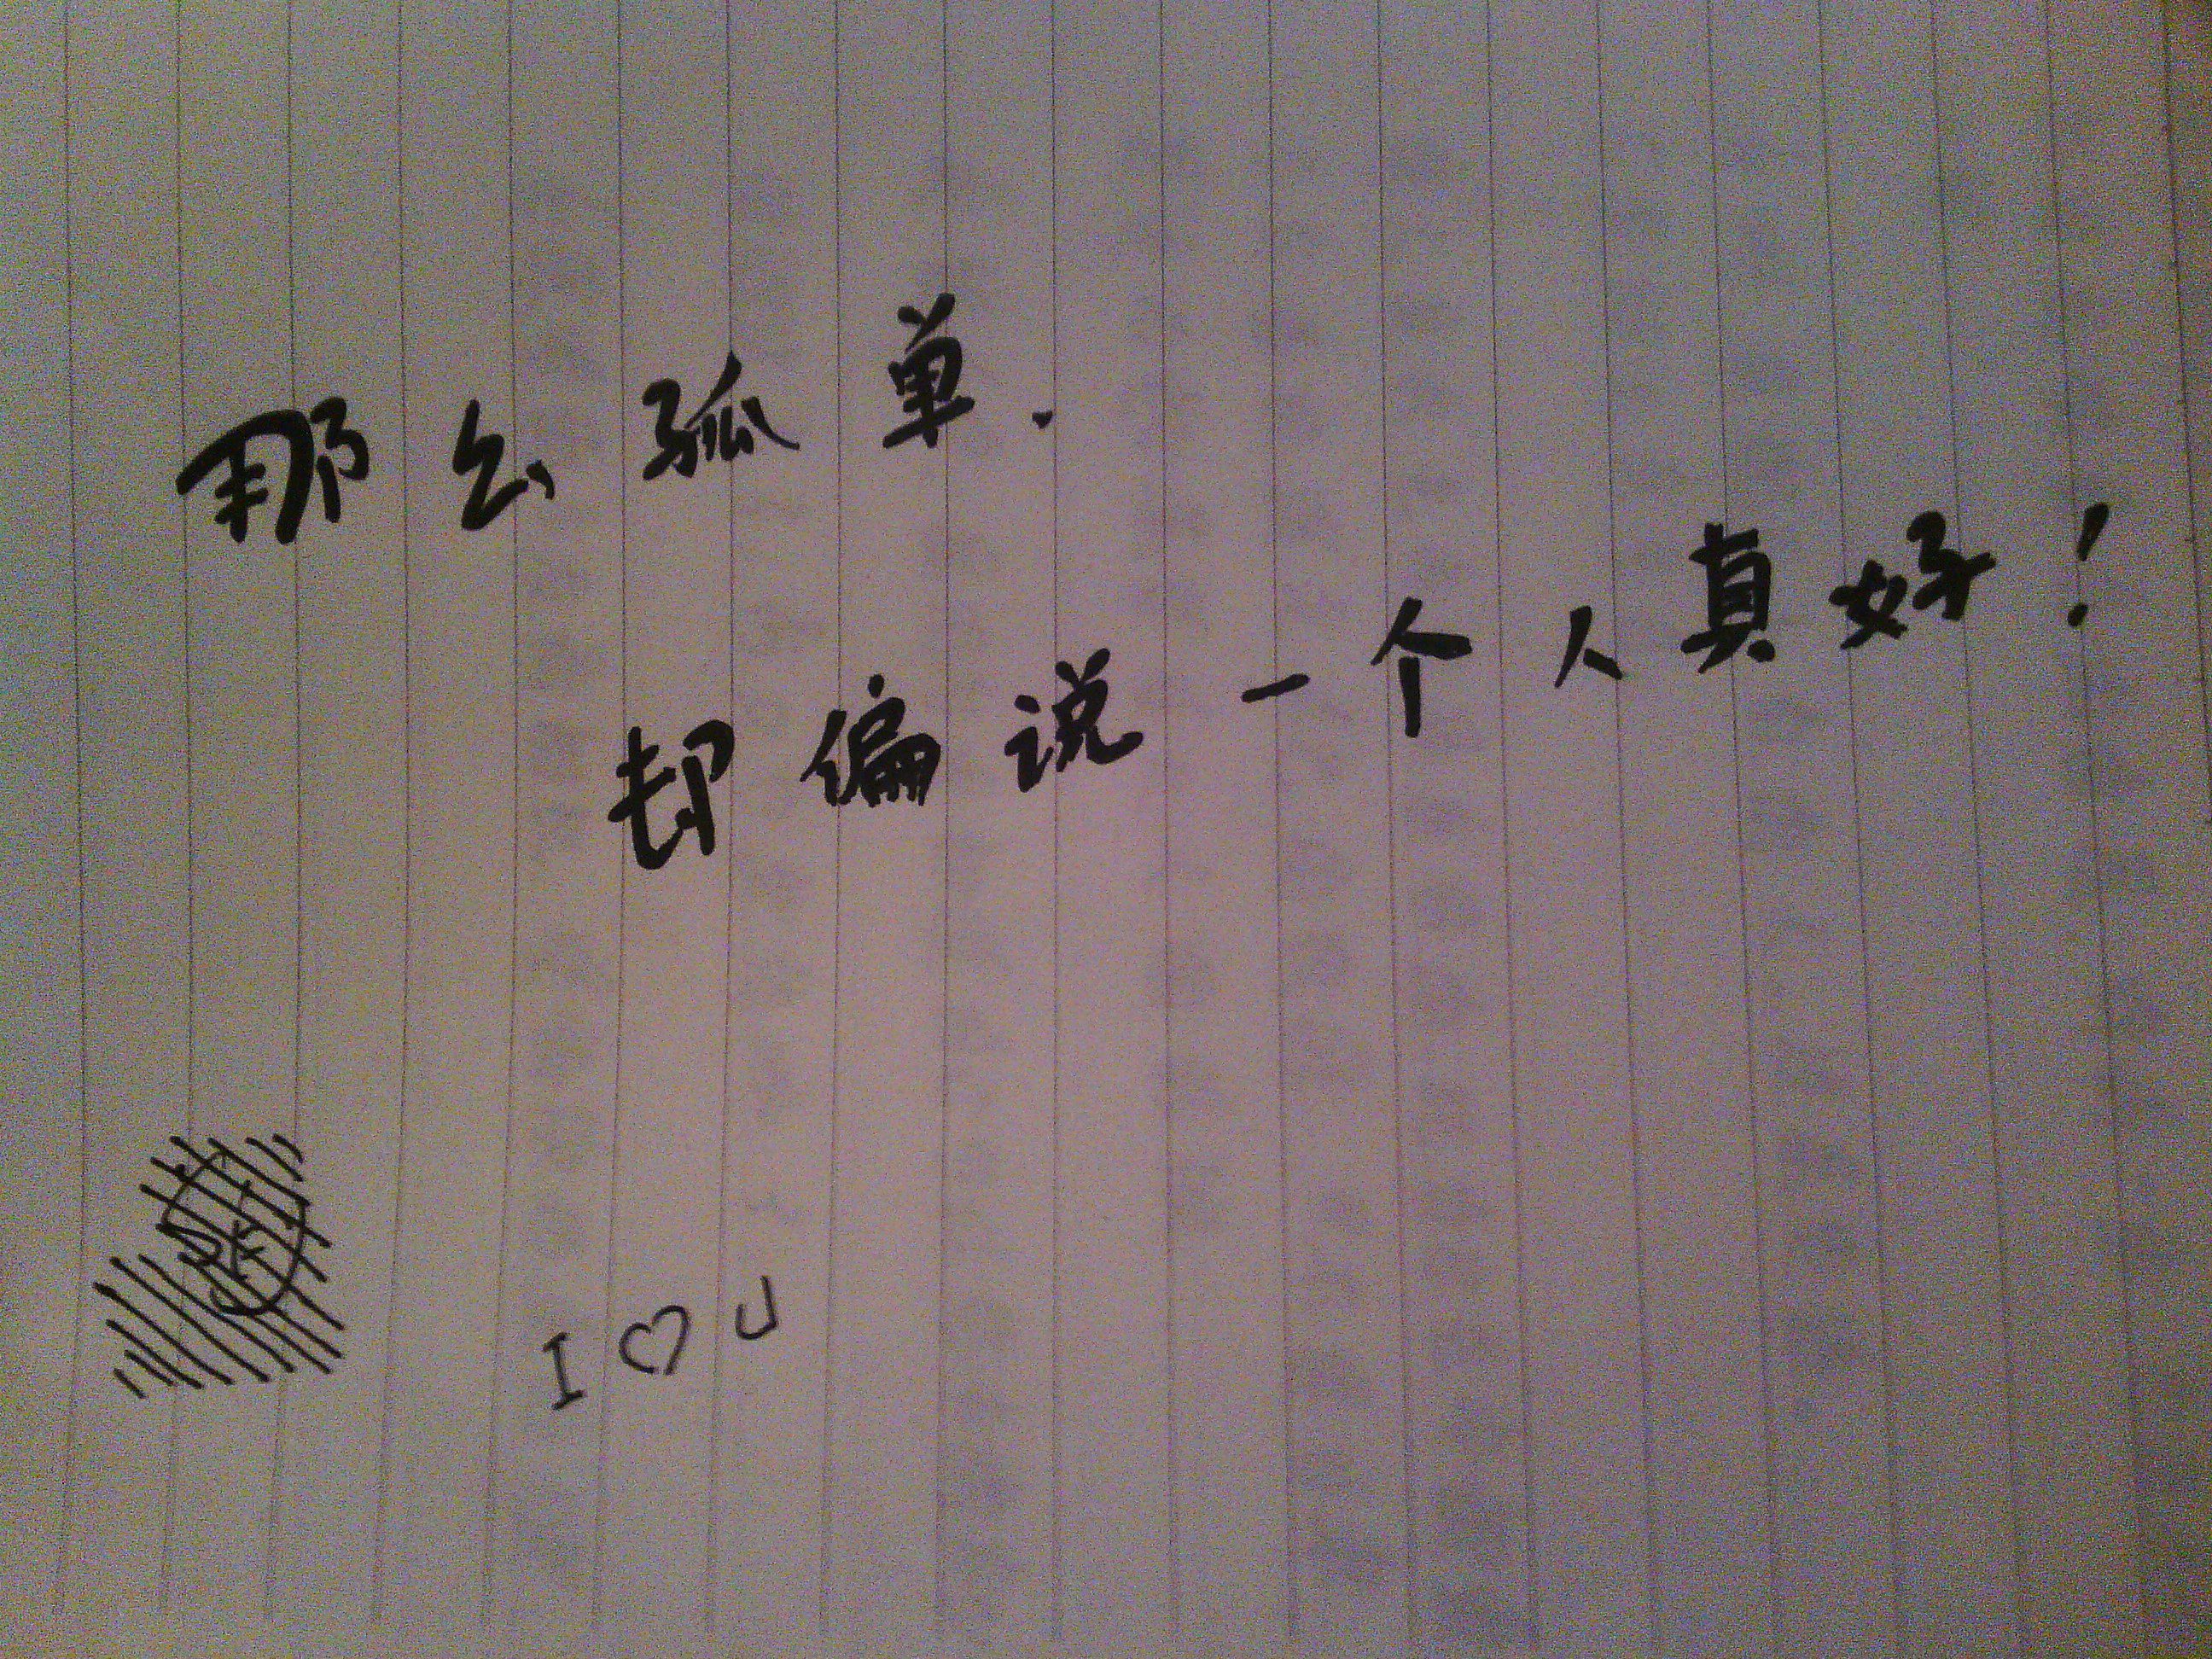 那么孤单.
却偏说一个人真好!
I ♡ U